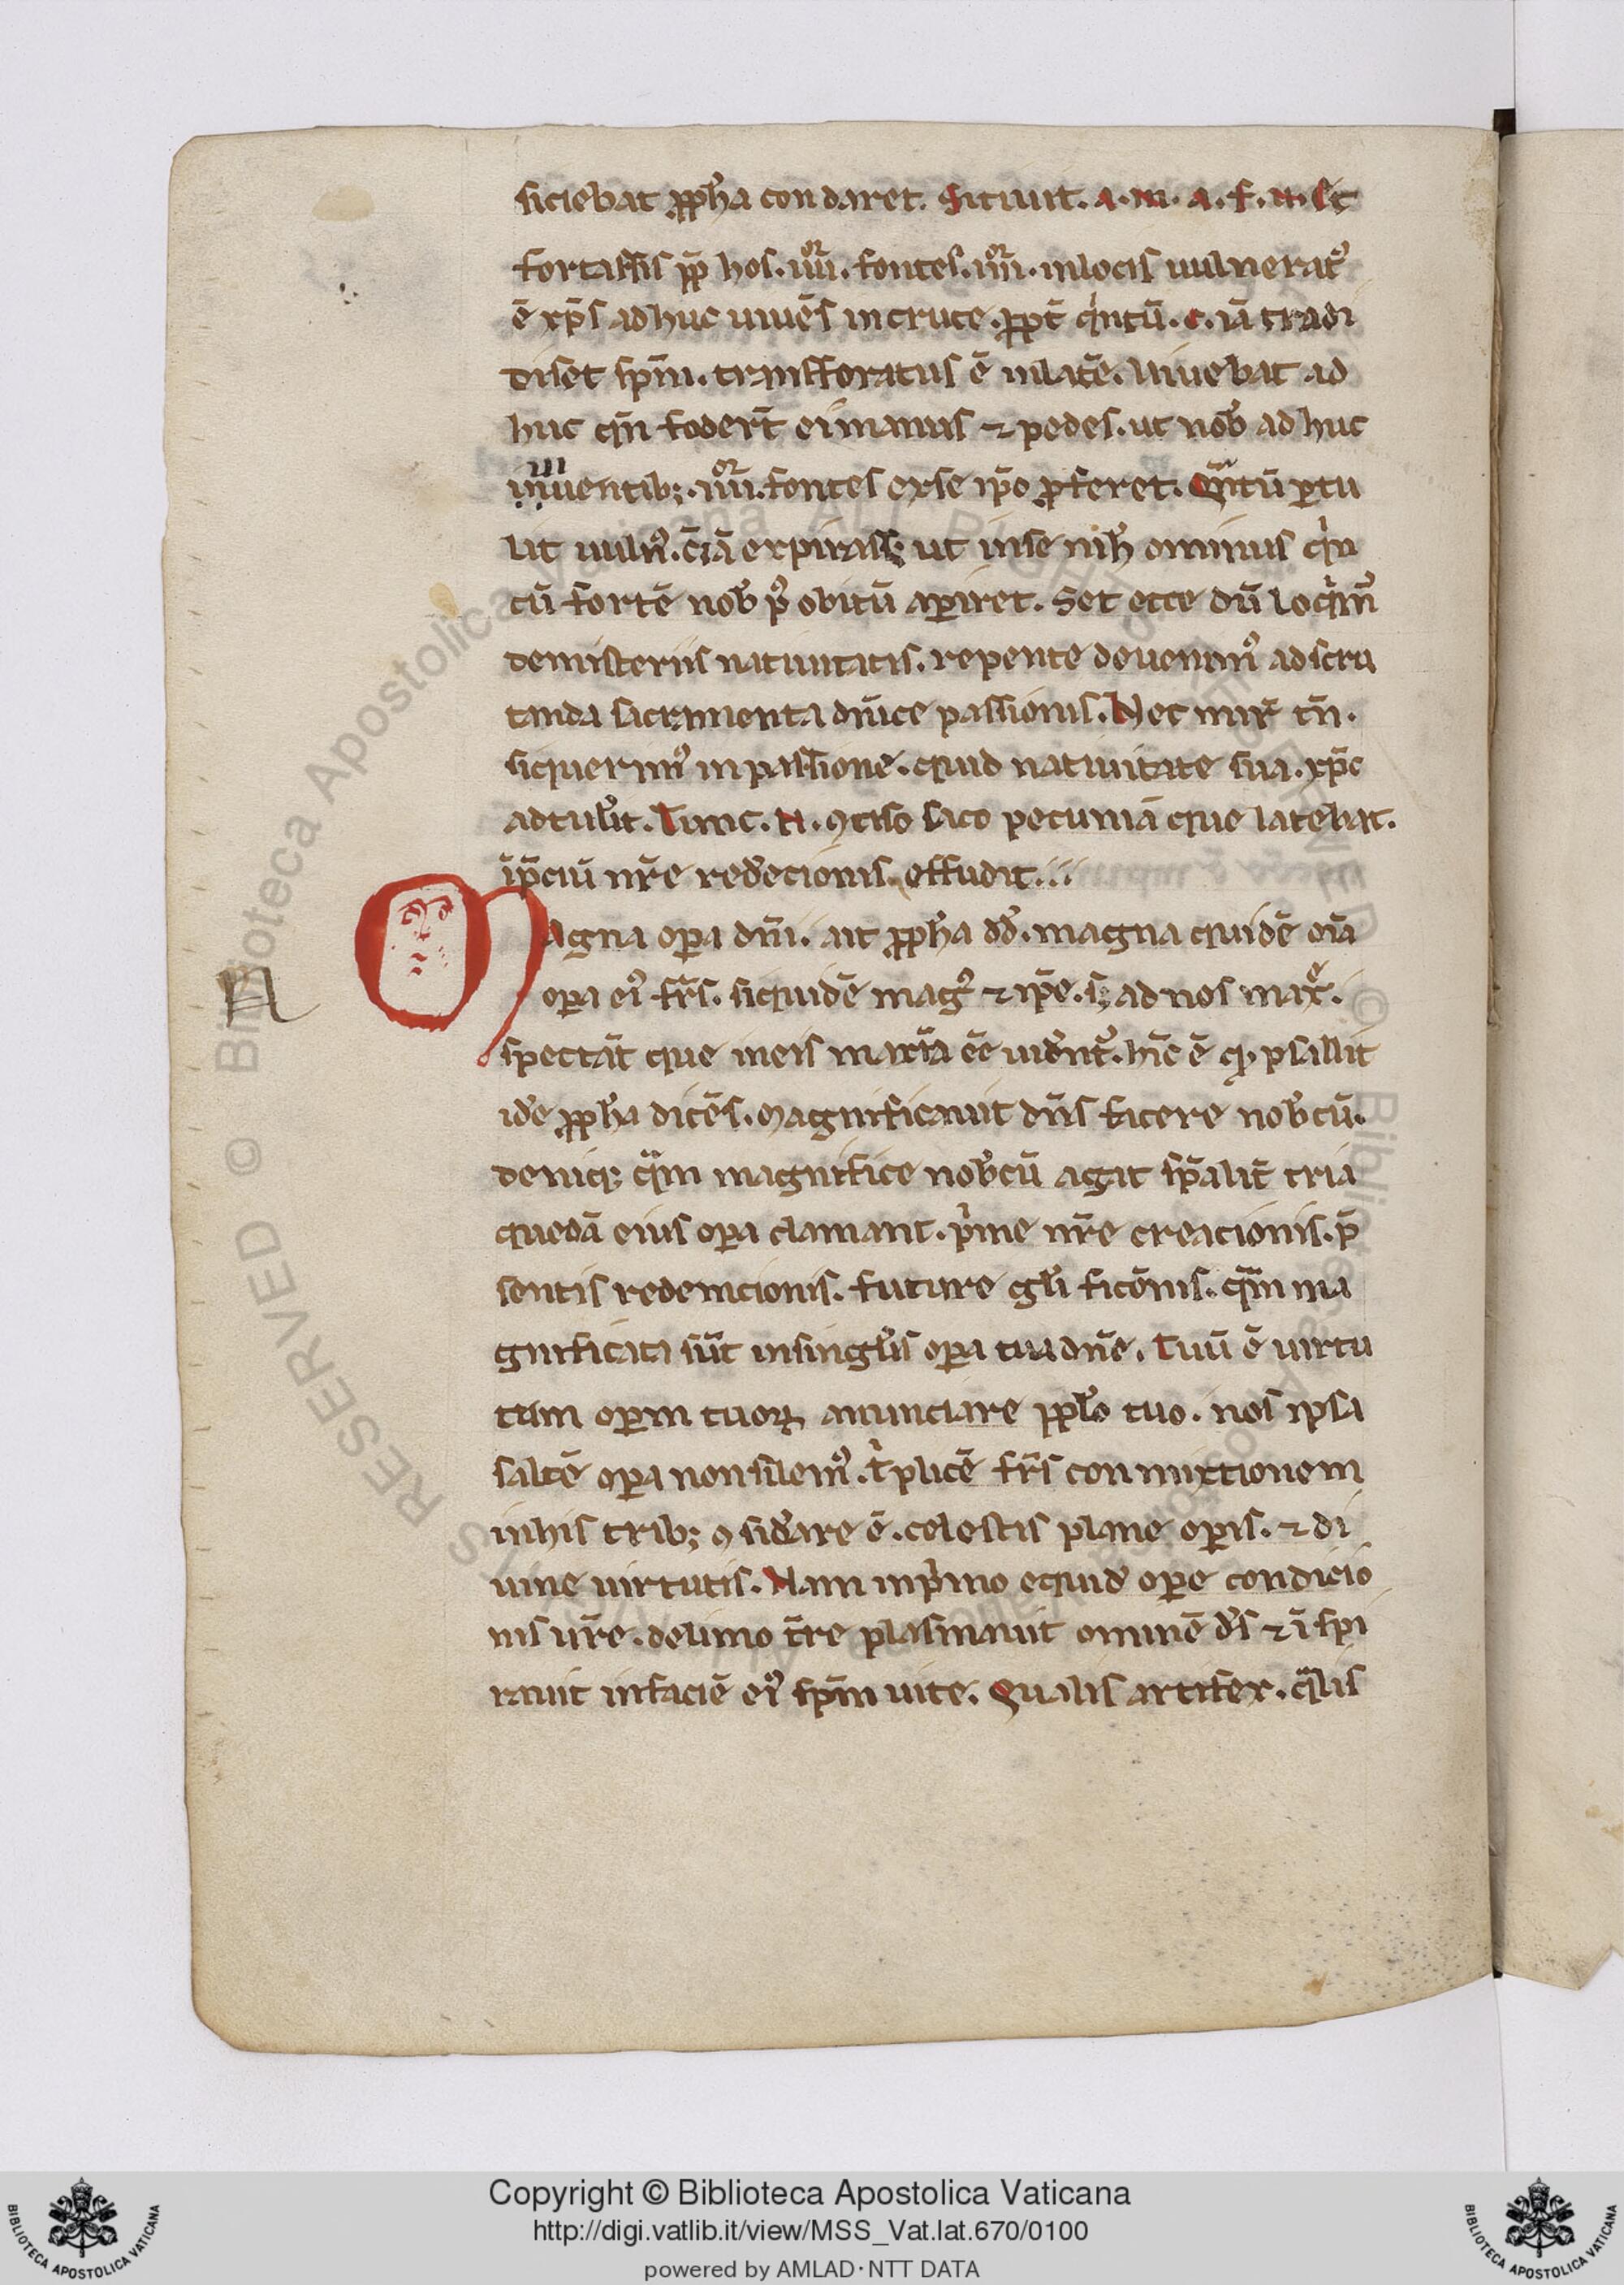 siciebat ꝓph̄a con daret. Sitiuit. a. m. a. f. u. Et
fortassis ꝓp̄ hos. iiii. fontes. iiii. in locis uulnerat᷒
ē xp̄s adhuc uiuēs in cruce. ꝓpt̄ qͥntū. c. iā tradi
diset sp̄m. transforatus ē in latē. Uiuebat ad
huc qn̄ foder̄t ei manus ⁊ pedes. ut nob̄ adhuc
uiuentib;. iiii. fontes ex se ip̄o ꝓferet. Qͥntū ꝑtu
lit uuln᷒. c̄iā expirass; ut in se nih̄ ominus qͥn
tū fortē nob̄ p᷒ obitū aꝑiret. Set ecce dū loqͥm᷒
demisteriis natiuitatis. repente deuenim᷒ ad scru
tanda sacramenta dn̄ice passionis. Nec mir̄ tn̄.
si querim᷒ in passione. quid natiuitate sua. xp̄c
adtul̄it. Tunc. N. ꝯciso saco pecuniā que latebat.
ī p̄ciū nr̄e redēcionis effudit...
Magna oꝑa dn̄i. ait ꝓph̄a dd̄. magna quidē oīa
oꝑa ei᷒ fr̄s. siquidē mag᷒ ⁊ ip̄e. s; ad nos max̄.
spectāt que in eis maxīa eē uident᷒. hīc ē qͥ psallit
idē ꝓph̄a dicēs. Magnificauit dn̄s facere nob̄cū.
deniq; qͣm magnifice nob̄cū agat sp̄alit̄ tria
quedā eius oꝑa clamant. pͥme nr̄e creacionis. p̄
sentis redemcionis. future gl̄i ficōnis. qͣm ma
gnificata sūt in singl̄is oꝑa tua dn̄e. Tuū ē uirtu
tem oꝑm tuoꝝ anunciare ppl̄o tuo. nos ipsa
saltē oꝑa non silem᷒. tͥplicē fr̄s con mixtionem
in his trib; ꝯsiderare ē. celestis plane oꝑis. ⁊ di
uine uirtutis. Nam in pͥmo equid̄ oꝑe condicio
nis ur̄e. de limo t̄re plasmauit ominē d̄s ⁊ ī spi
rauit in faciē ei᷒ sp̄m uite. Qualis artifex. qͣlis
BIBLIOTECA APOSTOLICA VATICANA
Copyright © Biblioteca Apostolica Vaticana
http://digi.vatlib.it/view/MSS_Vat.lat.670/0100
powered by AMLAD·NTT DATA
BIBLIOTECA APOSTOLICA VATICANA